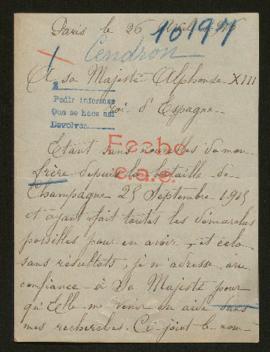 Paris le 26
Cendron
A sa Majesté Alphonse XIII
Roi d'Espagne.
Pedir informes
Que se hace así
Devolver
Fecho
Etant sans nouvelles de mon
frère depuis la bataille de
Champagne 25 Septembre 1915
et ayant fait toutes les démarches
possibles pour en avoir, et cela
sans résultats, je m'adresse avec
confiance à Sa Majesté pour
qu'Elle me vienne en aide dans
mes recherches. Ci-joint le nom-